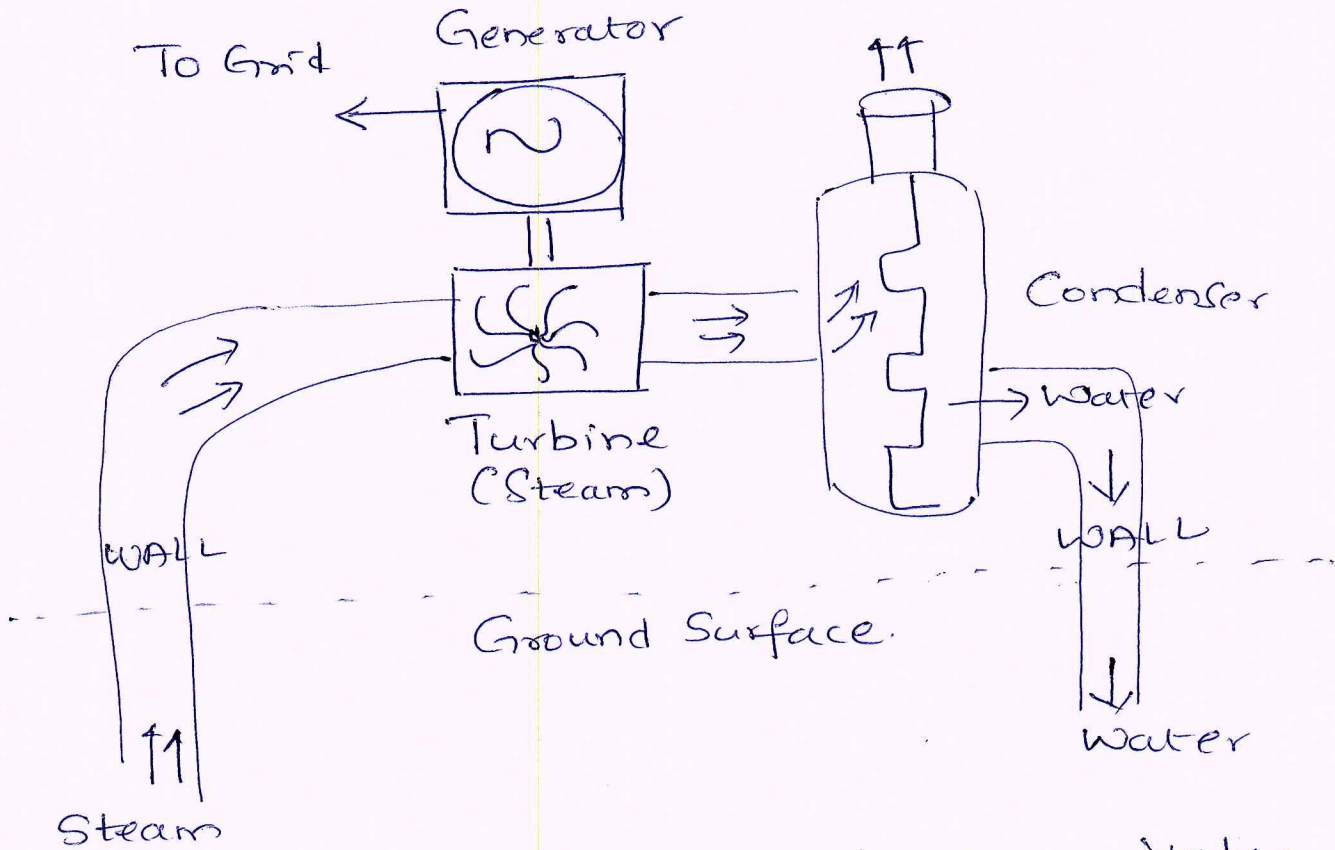 To Grid
Generator
Condenser
Water
Turbine
(Steam)
WALL
WALL
Ground Surface.
Water
Steam